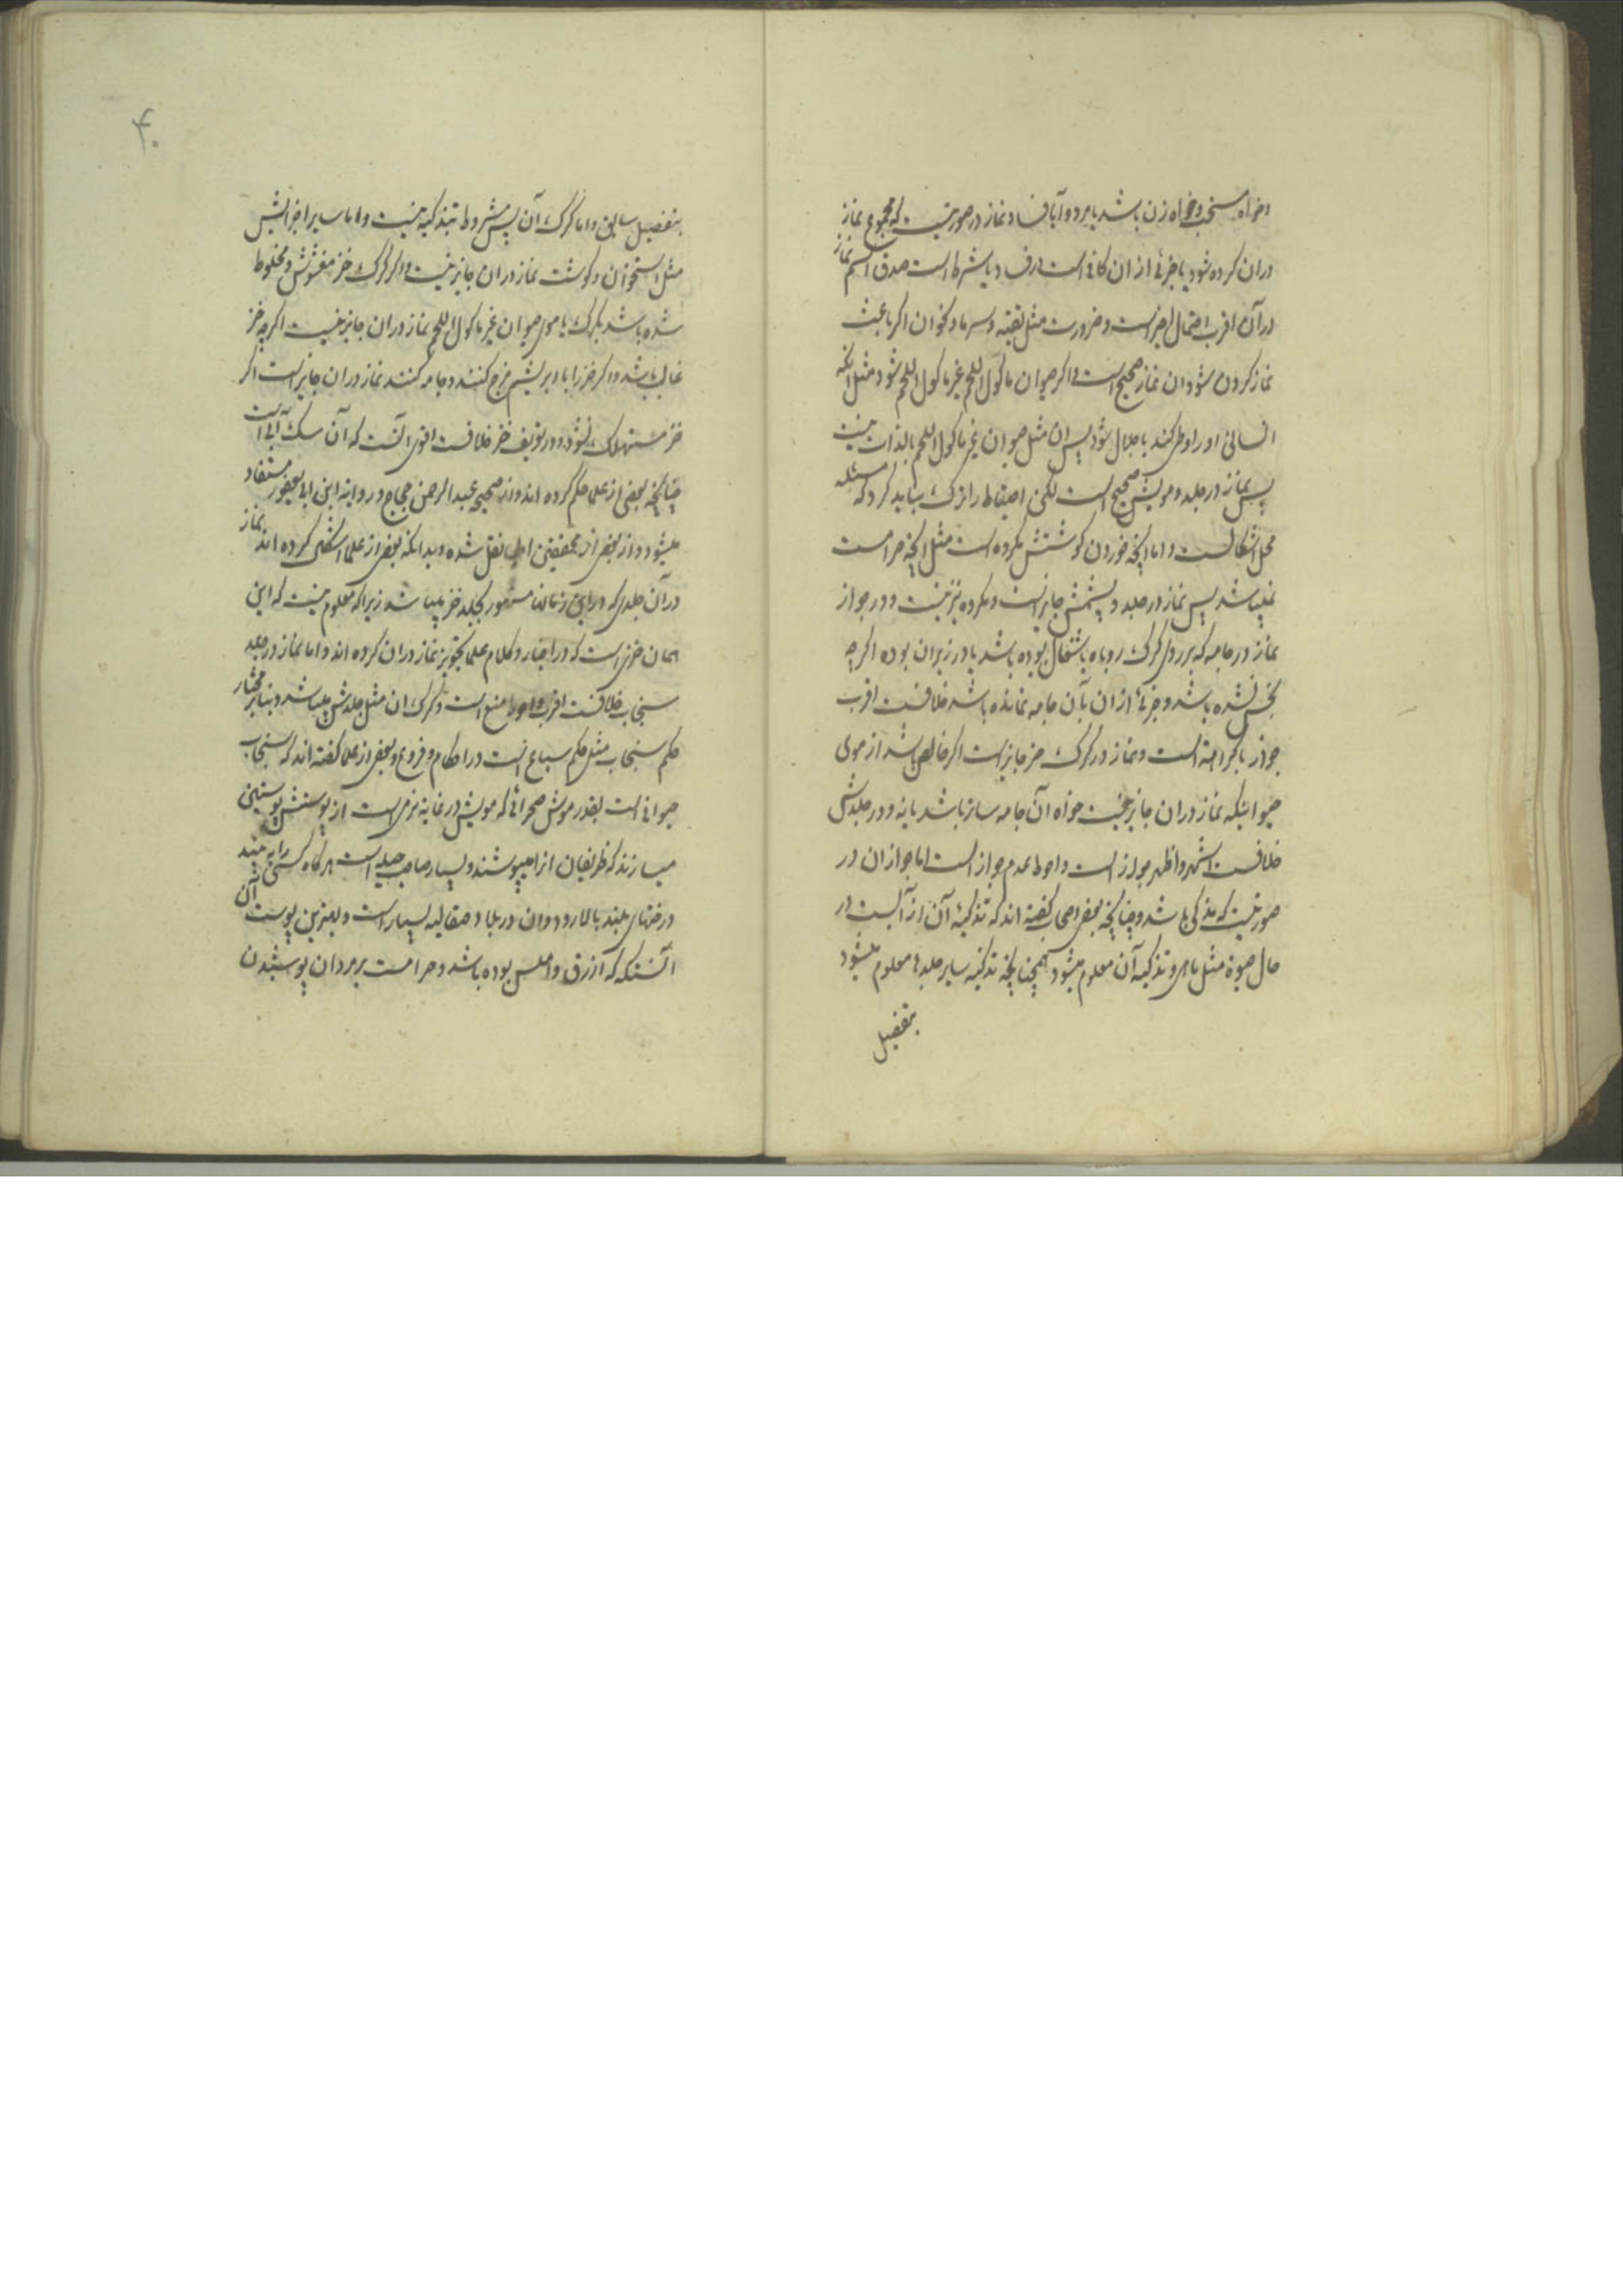 وخواه مستحب وخواه زن باشد یا مرد و آیا فساد نماز در صورتیست که مجموع نماز
دران کرده شود یا جزئی از ان کافی است در فساد یا شرط است صدق اسم نماز
در آن اقرب احتمال اخیر است و ضرورت مثل تقیه و سرما و نحو ان اگر باعث
نماز کردن شود ان نماز صحیح است و اگر حیوان ماکول اللحم غیر ماکول اللحم شود مثل انکه
انسانی او را وطی کند یا جلال شود پس ان مثل حیوان غیر ماکول اللحم بالذات نیست
پس نماز در جلد و مویش صحیح است لکن احتیاط را ترک نباید کرد که مسئله
محل اشکالست و اما انچه خوردن کوشتش مکروه است مثل انچه حرامست
نمیباشد پس نماز در جلد و پشمش جایز است و مکروه نیز نیست و در جواز
نماز در جامه که بر روی کرک روباه یا شغال بوده باشد یا در زیر ان بوده اکرچه
نجس نشده باشد و جزئی از ان بآن جامه نمانده باشد خلافست اقرب
جواز با کراهة است و نماز در کرک خز جایز است اکر خالص باشد از موی
حیوانیکه نماز دران جایز نیست خواه آن جامه ساتر باشد یا نه و در جلدش
خلافست اشهر و اظهر جواز است و احوط عدم جواز است اما جواز ان در
صورتیست که مذکی باشد و چنانچه بعض اصحاب کفته اند که تذکیۀ آن از آبست در
حال حیوة مثل ماهی و تذکیه آن معلوم میشود همچنانچه تذکیه سایر جلدها معلوم میشود
بتفصیل
۴۰
بتفصیل سابق و اما کرک آن پس مشروط بتذکیه نیست و اما سایر اجزایش
مثل استخوان و کوشت نماز دران جایز نیست و اکر کرک خز مغشوش و مخلوط
شده باشد بکرک یا موی حیوان غیر ماکول اللحم نماز دران جایز نیست اکرچه خز
غالب باشد و اکر خز را با ابریشم مزج کنند و جامه کنند نماز دران جایز است اکر
خز مستهلک نشود و در تعریف خز خلافست اقوی انست که آن سک آبی است
چنانچه بعضی از علما حکم کرده اند و از صحیح عبد الرحمن حجاج و روایة ابن ابی یعفور مستفاد
میشود و از بعض از محققین اطبا نقل شده و بدانکه بعض از علما اشکال کرده اند نماز
در آن جلدی که در این زمانها مشهور بجلد خز میباشد زیرا که معلوم نیست که این
همان خزی است که در اخبار و کلام علما تجویز نماز دران کرده اند و اما نماز در جلد
سنجاب خلافست اقرب و احوط منع است و کرک ان مثل جلدش میباشد و بنابر مختار
حکم سنجاب مثل حکم سباع است در احکام و فروع و بعض از علما کفته اند که سنجاب
حیوانی است بقدر موش صحرائی که مویش در غایة نرمی است از پوستش پوستین
میسازند که ظریفان انرا میپوشند و بسیار صاحب حیله است هرکاه کسی را به بیند
درختهای بلند بالا رود و ان در بلاد صقالیه بسیار است و بهترین پوست آن
آنستکه که ازرق و املس بوده باشد و حرامست بر مردان پوشیدن